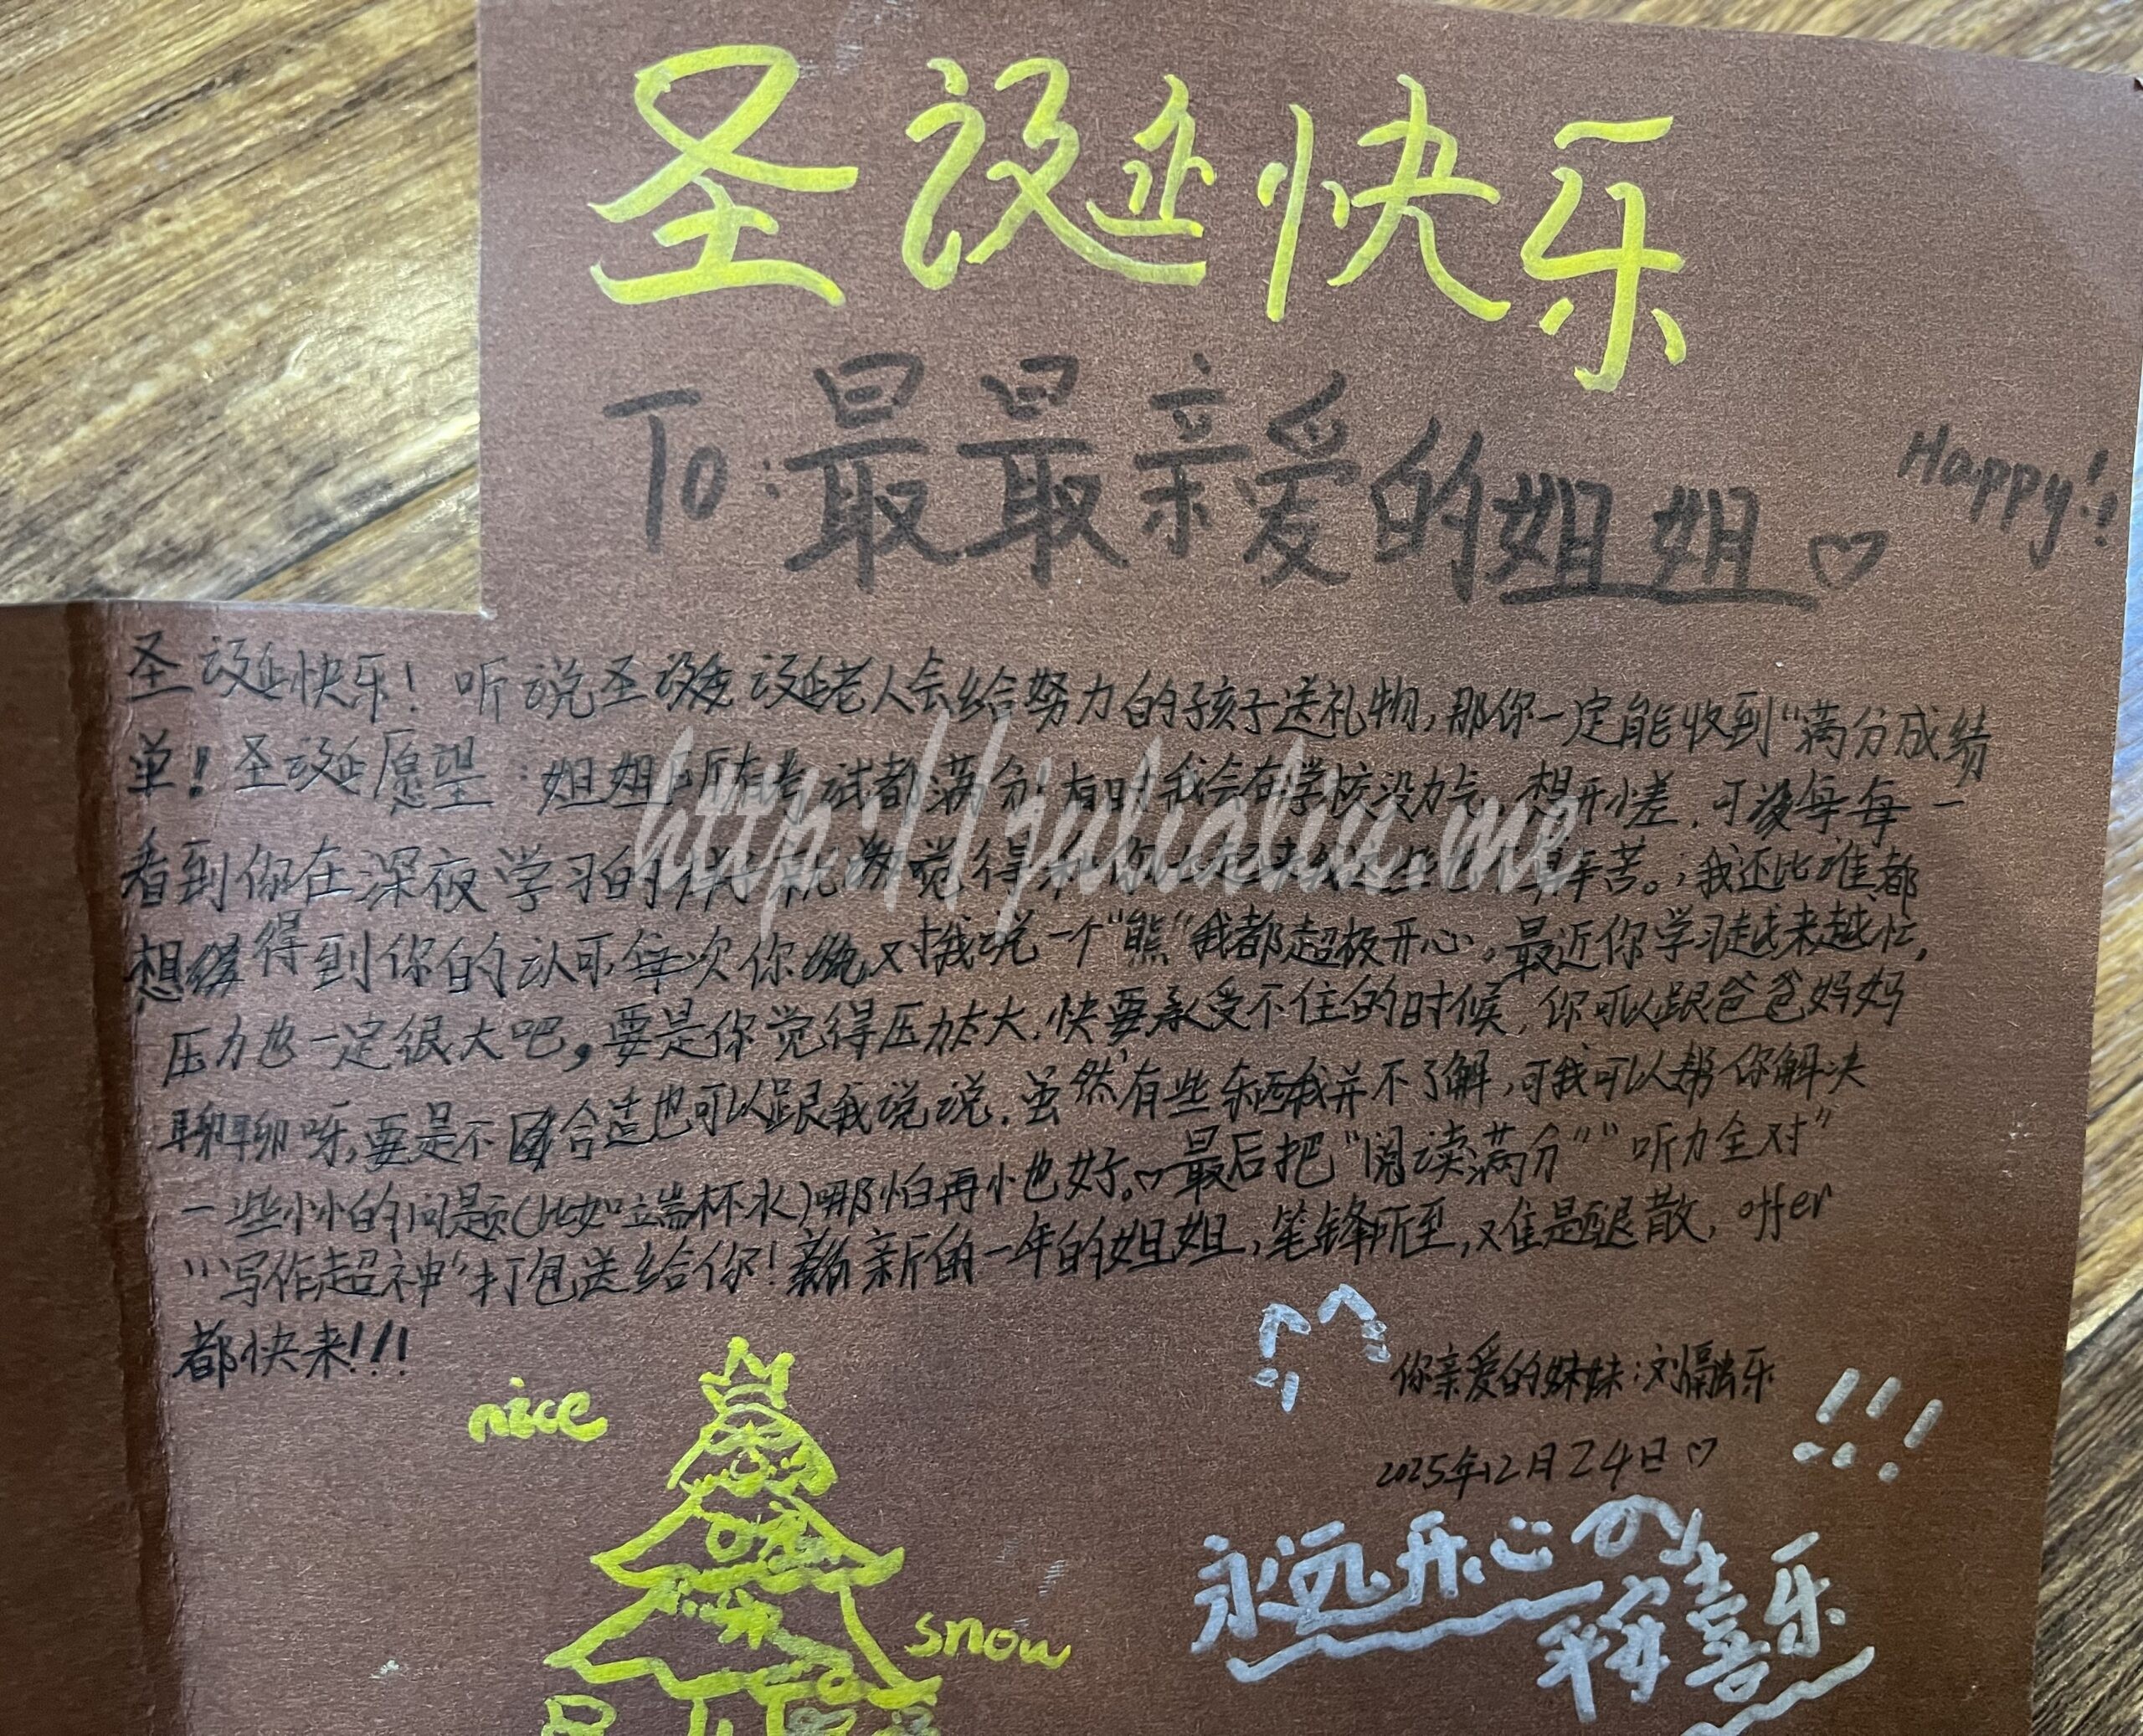 圣诞快乐
To:最最亲爱的姐姐♡
Happy!!
圣诞快乐!听说圣诞老人会给努力的孩子送礼物,那你一定能收到“满分成绩
单!圣诞愿望:姐姐所有考试都满分!有时我会在学校没力气,想开小差,可每每一
看到你在深夜学习的样子就觉得和你比起来我这些也不算辛苦。,我还比谁都
想得到你的认可,每次你对我说一个“熊”我都超极开心。最近你学习越来越忙,
压力也一定很大吧,要是你觉得压力太大,快要承受不住的时候,你可以跟爸爸妈妈
聊聊呀,要是不合适也可以跟我说说,虽然有些东西我并不了解,可我可以帮你解决
一些小小的问题(比如端杯水)哪怕再小也好。♡最后把“阅读满分”“听力全对”
“写作超神”打包送给你!新的一年的姐姐,笔锋所至,难题退散,offer
都快来!!!
nice
你亲爱的妹妹:刘 乐
2025年12月24日♡
!!!
snow
永远开心的
喜乐
http://julialiu.me